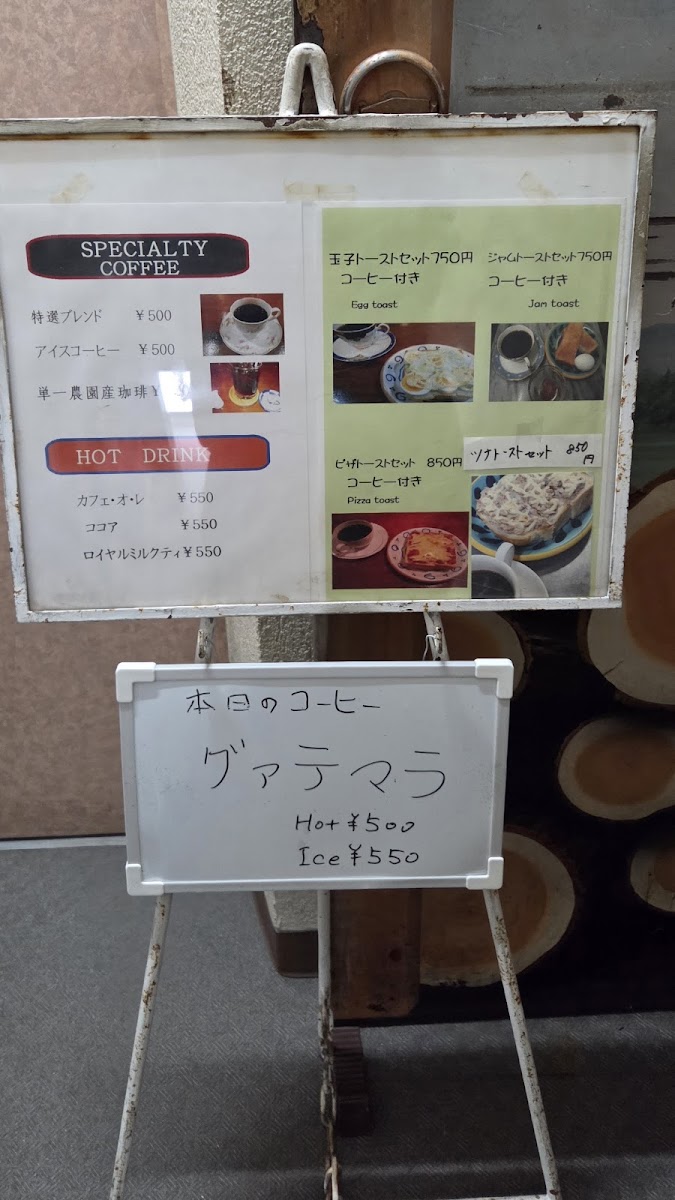 SPECIALTY
COFFEE
特選ブレンド ￥500
アイスコーヒー ￥500
単一農園産珈琲 ￥
HOT DRINK
カフェ・オ・レ ￥550
ココア ￥550
ロイヤルミルクティ ￥550
玉子トーストセット750円
コーヒー付き
Egg toast
ジャムトーストセット750円
コーヒー付き
Jam toast
ピザトーストセット 850円
コーヒー付き
Pizza toast
ツナトーストセット 850円
本日のコーヒー
グァテマラ
Hot ¥500
Ice ¥550